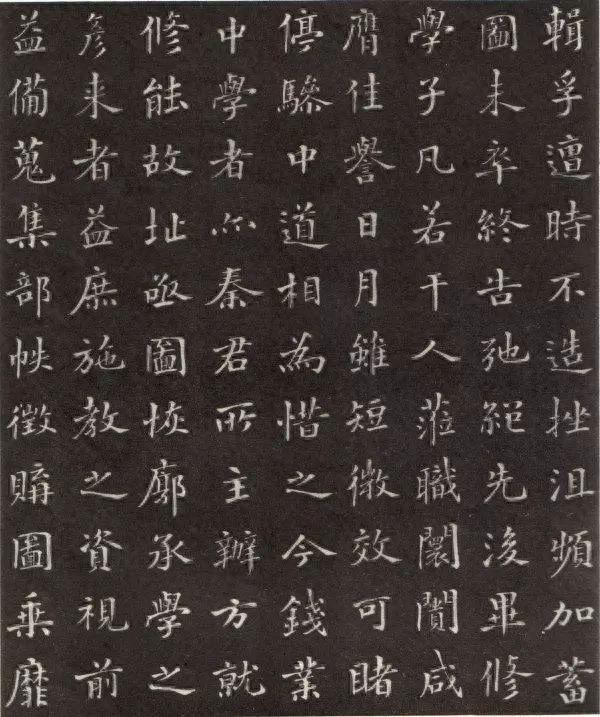 輯孚邅時不造挫沮頻加蓄
圖未卒終告弛絕先後畢修
學子凡若干人蒞職闤闠咸
膺佳譽日月雖短徵效可睹
停驂中道相為惜之今錢業
中學者亦秦君所主辦方就
修能故址亟圖恢廓承學之
彥来者益庶施教之資視前
益備蒐集部帙徵購圖乗靡